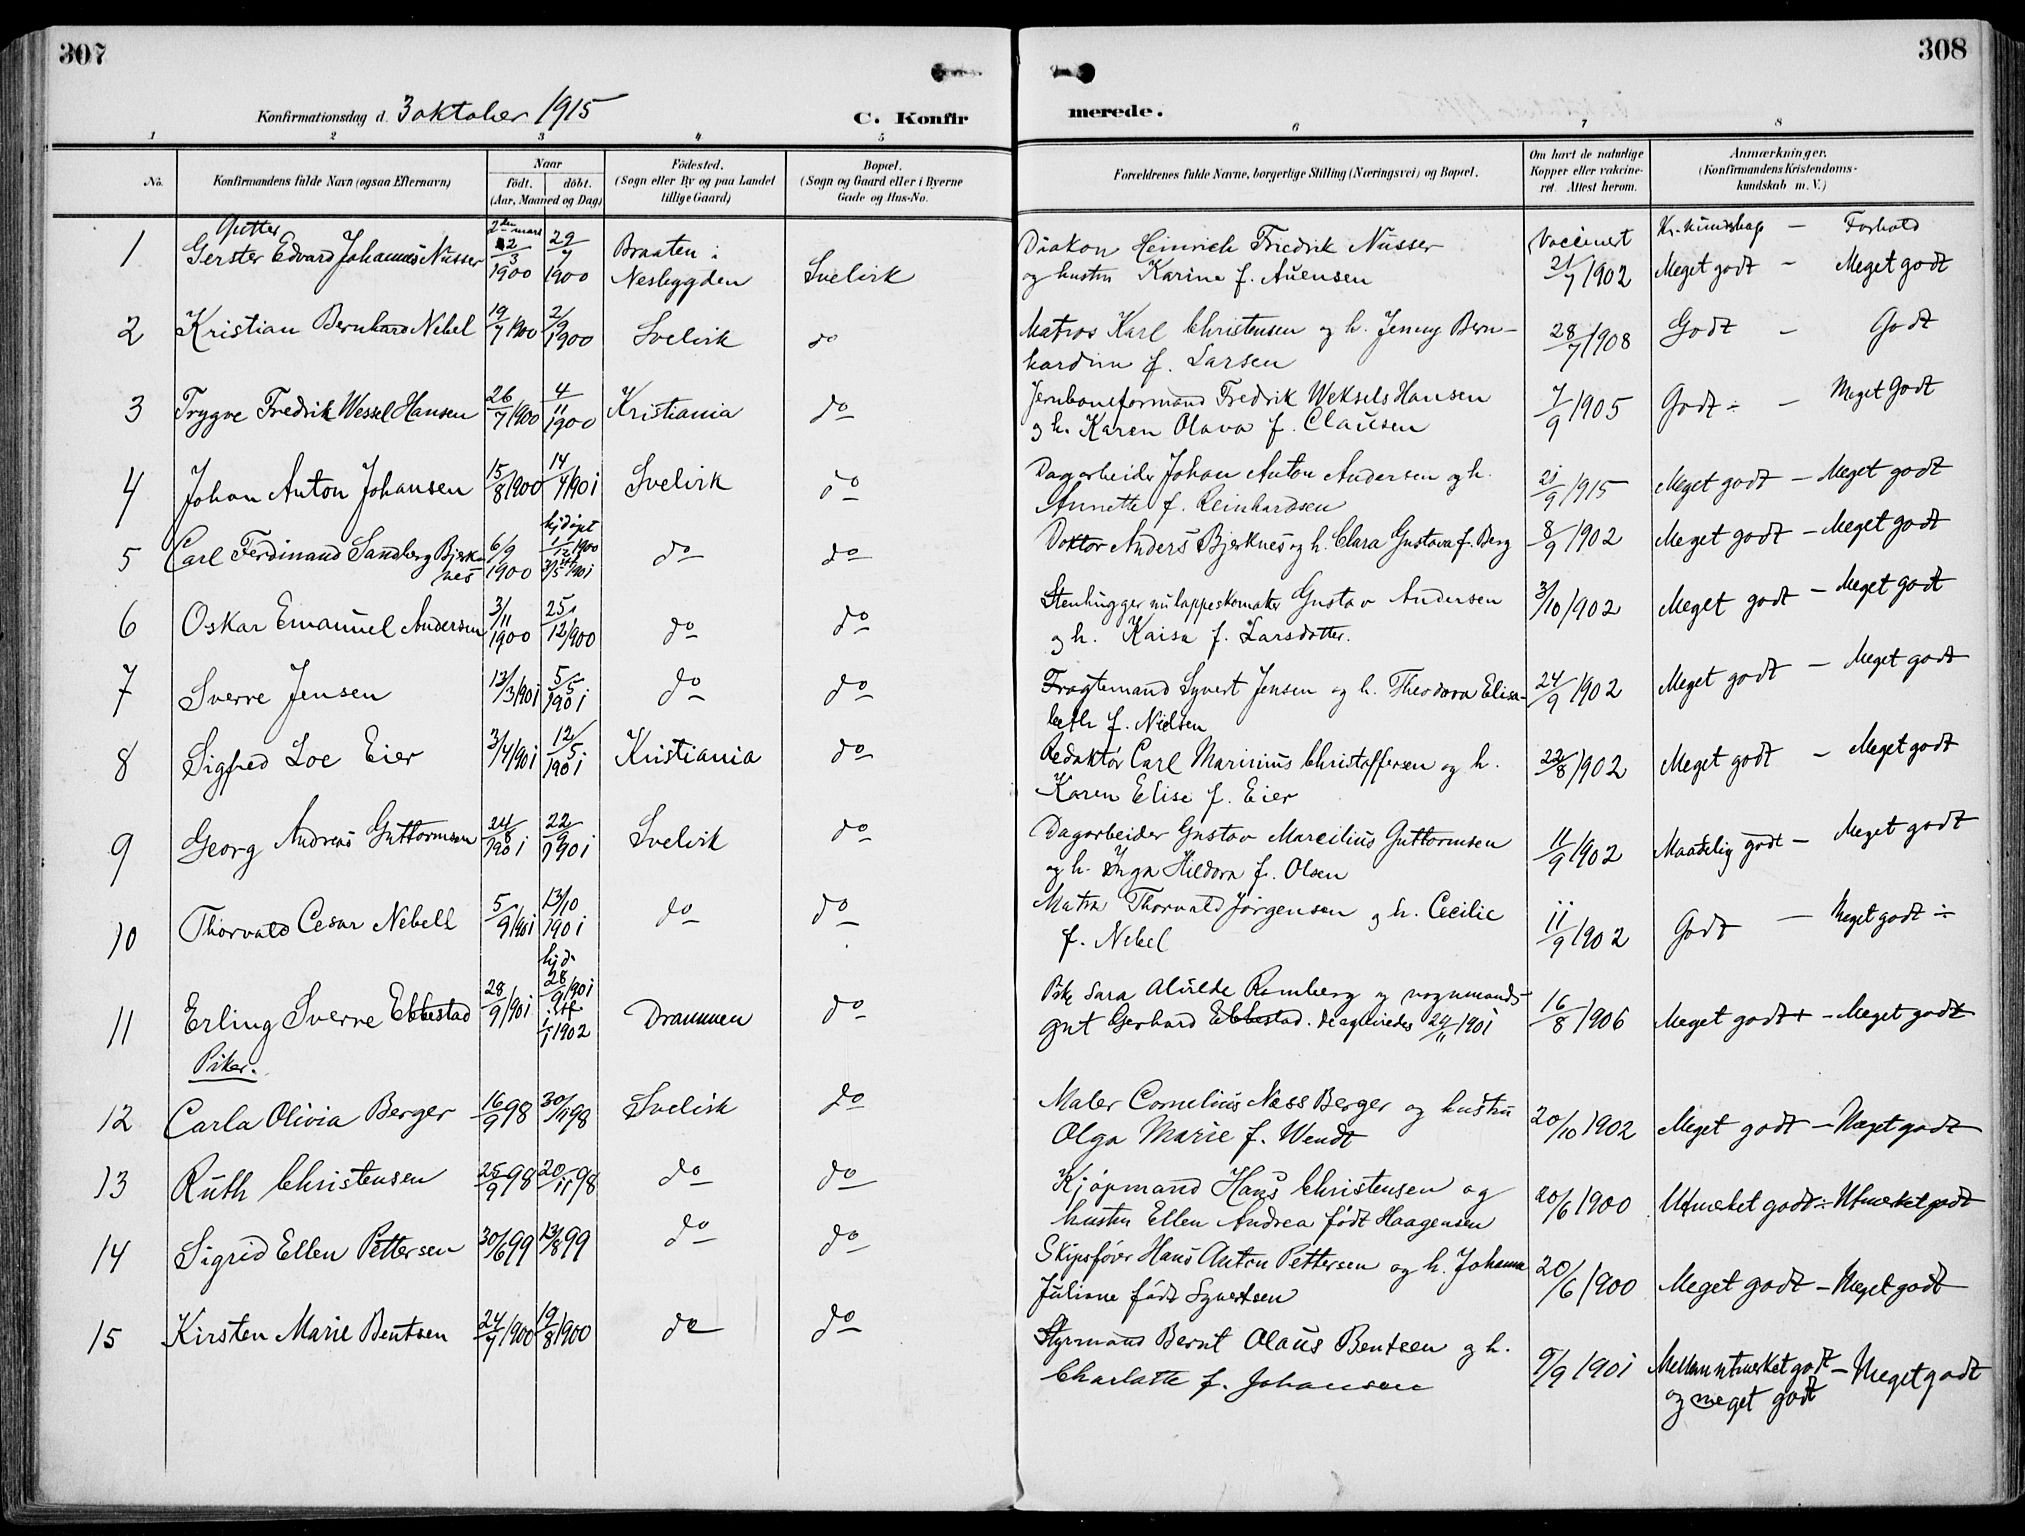 307
308
Konfirmationsdag d. 3 oktober 1915
C. Konfir
merede.
1 2 3 4 5 6 7 8
No.
Konfirmandens fulde Navn (ogsaa Efternavn)
Naar
födt. döbt.
(Aar, Maaned og Dag)
Födested.
(Sogn eller By og paa Landet
tillige Gaard)
Bopæl.
(Sogn og Gaard eller i Byerne
Gade og Hus-No.
Forældrenes fulde Navne, borgerlige Stilling (Næringsvei) og Bopæl.
Om havt de naturlige
Kopper eller vakcine-
ret. Attest herom.
Anmærkninger.
(Konfirmandens Kristendoms-
kundskab m. V.)
Gutter
Kr. kundskap — Forhold
1 Gerster Edvard Johannes Nusser 2den mars 2/3 1900 29/7 1900 Braaten i Nesbygden Svelvik Diakon Heinrich Fredrik Nusser
og hustru Karine f. Auensen Vaccinert 21/7 1902 Meget godt - Meget godt
2 Kristian Bernhard Nebel 19/7 1900 2/9 1900 Svelvik do Matros Karl Christensen og h. Jenny Bern-
hardine f. Larsen 28/7 1908 Godt - Godt
3 Trygve Fredrik Wessel Hansen 26/7 1900 4/11 1900 Kristiania do Jernbaneformand Fredrik Weksels Hansen
og h. Karen Olava f. Clausen 7/9 1905 Godt ÷ - Meget Godt
4 Johan Anton Johansen 15/8 1900 14/4 1901 Svelvik do Dagarbeider Johan Anton Andersen og h.
Annette f. Reinhardsen 21/9 1915 Meget godt - Meget godt
5 Carl Ferdinand Sandberg Bjerk-
nes 6/9 1900 hjdöpt 1/12 1900 do do Doktor Anders Bjerknes og h. Clara Gustava f. Berg 8/9 1902 Meget godt - Meget godt
6 Oskar Emanuel Andersen 3/11 1900 25/12 1900 do do Stenhugger nu lappeskomaker Gustav Andersen
og h. Kaisa f. Larsdatter. 3/10 1902 Meget godt - Meget godt
7 Sverre Jensen 13/3 1901 5/5 1901 do do Fragtemand Syvert Jensen og h. Theodora Elisa-
beth f. Nielsen 24/9 1902 Meget godt - Meget godt
8 Sigfred Loe Eier 3/4 1901 12/5 1901 Kristiania do Redaktör Carl Marinius Christoffersen og h.
Karen Elise f. Eier 22/8 1902 Meget godt - Meget godt
9 Georg Andreas Guttormsen 24/8 1901 22/9 1901 Svelvik do Dagarbeider Gustav Marcilius Guttormsen
og h. Inga Hildora f. Olsen 11/9 1902 Maadelig godt - Meget godt
10 Thorvald Cesar Nebell 5/9 1901 13/10 1901 do do Matros Thorvald Jörgensen og h. Cecilie
f. Nebel 11/9 1902 Godt - Meget godt ÷
11 Erling Sverre Ebbestad 28/9 1901 hjd. 28/9 1901 1/1 1902 Drammen do Pike Sara Alvilde Ramberg og vognmands-
gut Gerhard Ebbestad. 24/11 1901 16/8 1906 Meget godt + - Meget godt
Piker.
12 Carla Olivia Berger 16/9 98 30/11 98 Svelvik do Maler Cornelius Næss Berger og hustru
Olga Marie f. Wendt 20/10 1902 Meget godt - Meget godt
13 Ruth Christensen 25/9 98 20/11 98 do do Kjöpmand Hans Christensen og
hustru Ellen Andrea födt Haagensen 20/6 1900 Utmerket godt ÷ Utmerket godt
14 Sigrid Ellen Pettersen 30/6 99 13/8 99 do do Skipsförer Hans Anton Pettersen og h. Johanna
Juliane födt Syvertsen 20/6 1900 Meget godt - Meget godt
15 Kirsten Marie Bentsen 24/7 1900 19/8 1900 do do Styrmand Bernt Olaus Bentsen og h.
Charlotte f. Johansen 9/9 1901 Mellem utmerket godt - Meget godt
og meget godt